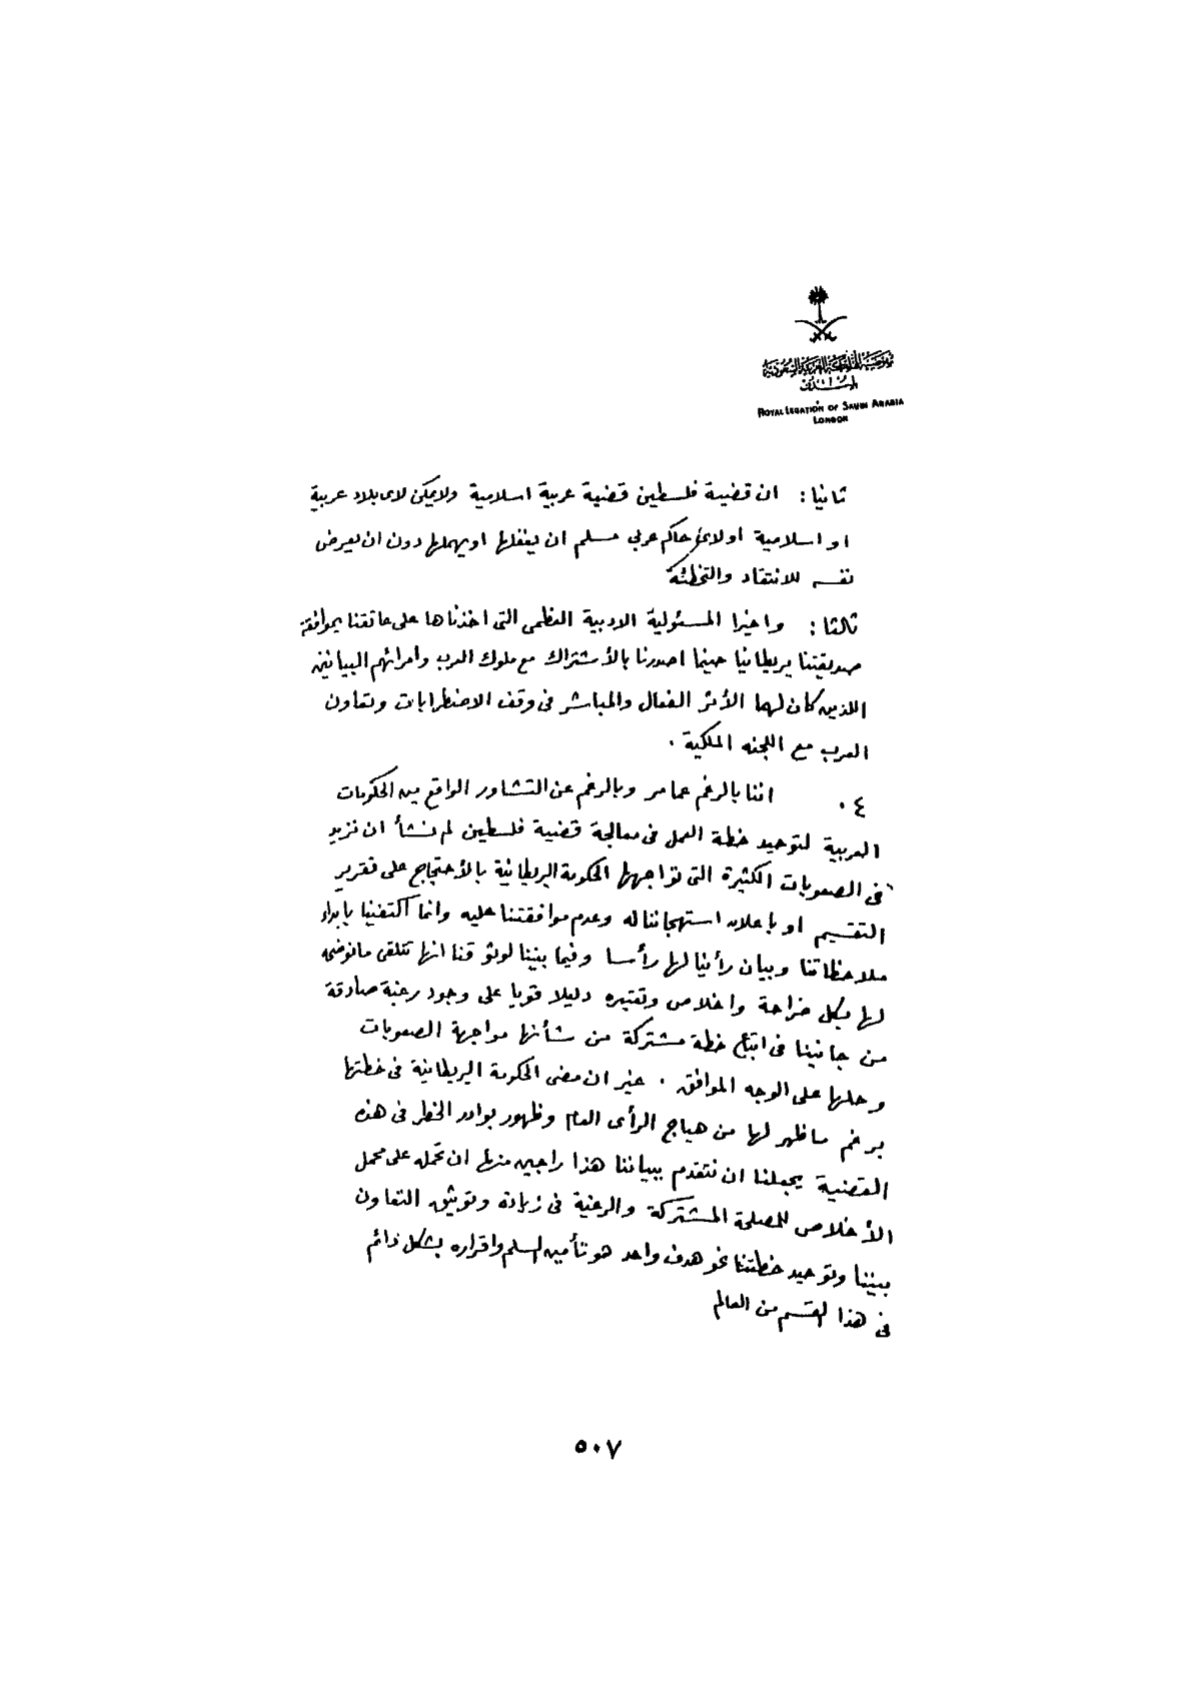 مفوضية المملكة العربية السعودية
لندن
ROYAL LEGATION OF SAUDI ARABIA
LONDON
ثانيا : ان قضية فلسطين قضية عربية اسلامية ولايمكن لاى بلاد عربية
او اسلامية او لاى حاكم عربي مسلم ان يغفلها او يهملها دون ان يعرض
نفسه للانتقاد والتخطئة
ثالثا : واخيرا المسئولية الادبية العظمى التى اخذناها على عاتقنا بموافقة
صديقتنا بريطانيا حينما اصدرنا بالأشتراك مع ملوك العرب وامرائهم البيانين
اللذين كان لهما الأثر الفعال والمباشر فى وقف الاضطرابات وتعاون
العرب مع اللجنه الملكية .
٤ . اننا بالرغم عما مر وبالرغم عن التشاور الواقع بين الحكومات
العربية لتوحيد خطة العمل فى معالجة قضية فلسطين لم نشأ ان نزيد
فى الصعوبات الكثيرة التى تواجهها الحكومة البريطانية بالأحتجاج على تقرير
التقسيم او باعلان استهجاننا له وعدم موافقتنا عليه وانما اكتفينا بابداء
ملاحظاتنا وبيان رأينا لها رأسا وفيما بيننا لوثوقنا انها تتلقى مانوضحه
لها بكل صراحة واخلاص وتعتبره دليلا قويا على وجود رغبة صادقة
من جانبنا فى اتباع خطة مشتركة من شأنها مواجهة الصعوبات
وحلها على الوجه الموافق . غير ان مضى الحكومة البريطانية فى خطتها
برغم ما ظهر لها من هياج الرأى العام وظهور بوادر الخطر فى هذه
القضية يجعلنا ان نتقدم ببياننا هذا راجين منها ان تحمله على محمل
الأخلاص للمصلحة المشتركة والرغبة فى زيادة وتوثيق التعاون
بيننا وتوحيد خطتنا نحو هدف واحد هو تأمين السلم واقراره بشكل دائم
فى هذا القسم من العالم
٥٠٧